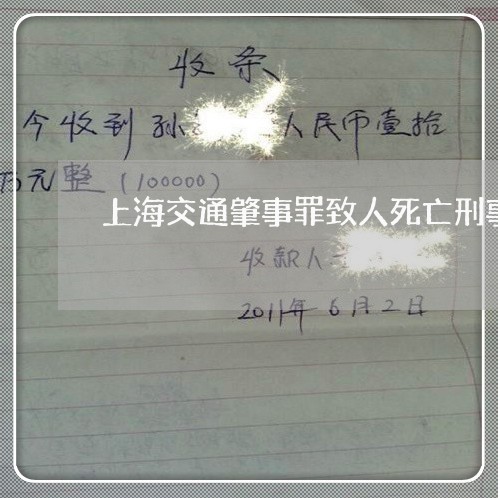 收条
今收到孙 人民币壹拾
万元整(100000)
上海交通肇事罪致人死亡刑事
收款人
2011年6月2日